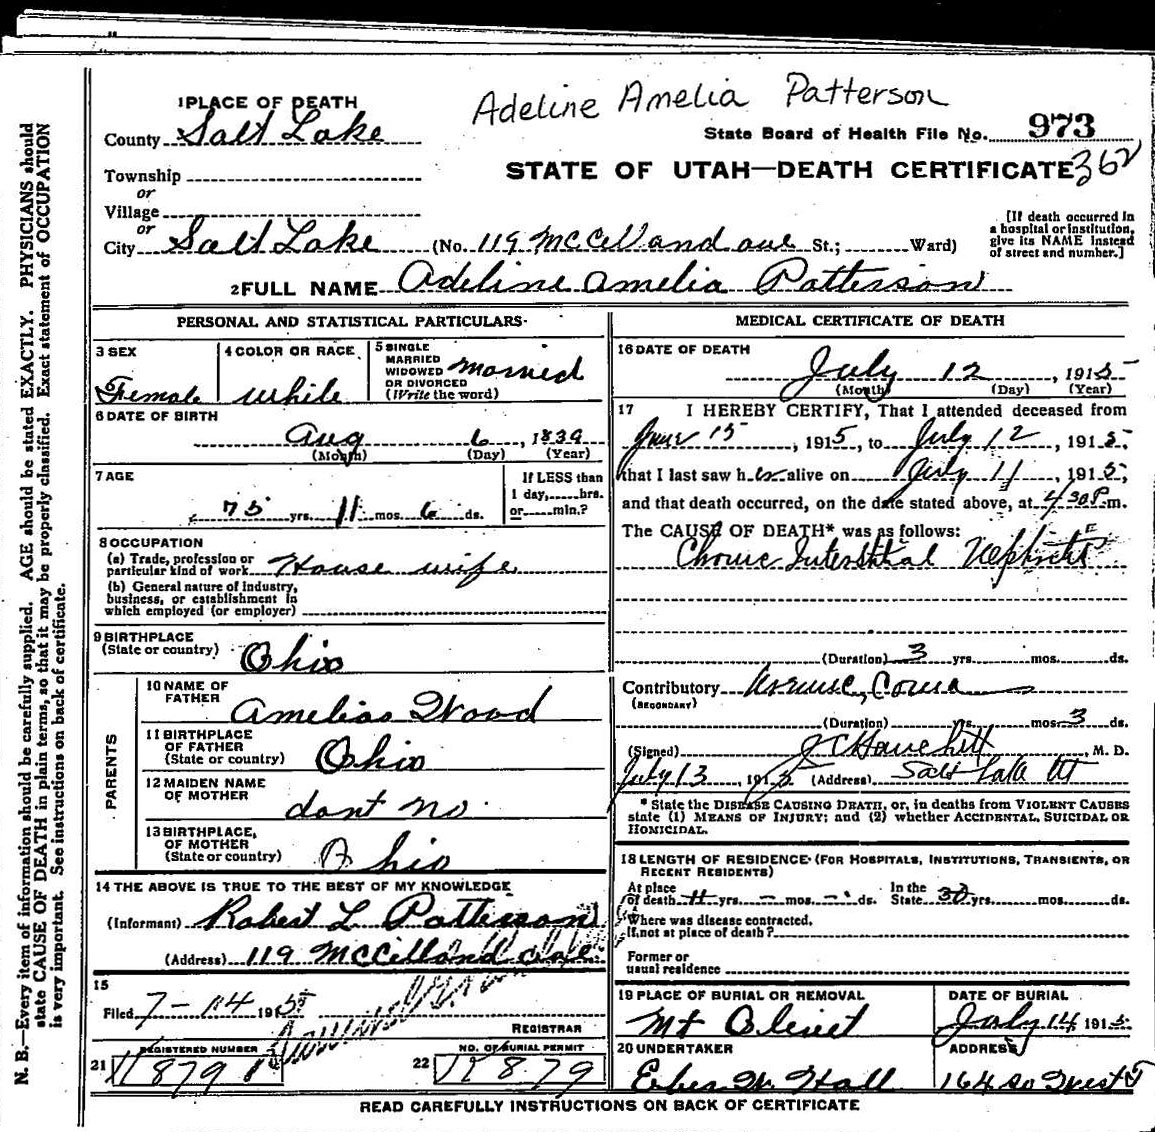 Adeline Amelia Patterson
1 PLACE OF DEATH
County Salt Lake
State Board of Health File No. 973
Township
STATE OF UTAH—DEATH CERTIFICATE 362
or
Village
or
City Salt Lake (No. 119 McClelland ave St.; Ward)
[If death occurred in a hospital or institution, give its NAME instead of street and number.]
2 FULL NAME Adeline Amelia Patterson
PERSONAL AND STATISTICAL PARTICULARS
3 SEX Female
4 COLOR OR RACE White
5 SINGLE MARRIED WIDOWED OR DIVORCED (Write the word) Married
6 DATE OF BIRTH
Aug 6, 1839
(Month) (Day) (Year)
7 AGE
75 yrs. 11 mos. 6 ds.
If LESS than 1 day, hrs. or min.?
8 OCCUPATION
(a) Trade, profession or particular kind of work House wife
(b) General nature of industry, business, or establishment in which employed (or employer)
9 BIRTHPLACE (State or country) Ohio
PARENTS
10 NAME OF FATHER Amelias Wood
11 BIRTHPLACE OF FATHER (State or country) Ohio
12 MAIDEN NAME OF MOTHER dont no
13 BIRTHPLACE, OF MOTHER (State or country) Ohio
14 THE ABOVE IS TRUE TO THE BEST OF MY KNOWLEDGE
(Informant) Robert L Patterson
(Address) 119 McClelland ave
15
Filed 7-14 1915
REGISTRAR
21 REGISTERED NUMBER
22 NO. OF BURIAL PERMIT
MEDICAL CERTIFICATE OF DEATH
16 DATE OF DEATH
July 12, 1915
(Month) (Day) (Year)
17 I HEREBY CERTIFY, That I attended deceased from
June 15, 1915, to July 12, 1915,
that I last saw her alive on July 11, 1915,
and that death occurred, on the date stated above, at 4 30 P.m.
The CAUSE OF DEATH* was as follows:
Chronic Interstitial Nephritis
(Duration) 3 yrs. mos. ds.
Contributory (SECONDARY) Uremic, Coma
(Duration) yrs. mos. 3 ds.
(Signed) M. D.
July 13, 1915 (Address) Salt Lake Ut
* State the DISEASE CAUSING DEATH, or, in deaths from VIOLENT CAUSES
state (1) MEANS OF INJURY; and (2) whether ACCIDENTAL, SUICIDAL OR
HOMICIDAL.
18 LENGTH OF RESIDENCE (FOR HOSPITALS, INSTITUTIONS, TRANSIENTS, OR
RECENT RESIDENTS)
At place of death 11 yrs. – mos. – ds. In the State 30 yrs. mos. ds.
Where was disease contracted,
If not at place of death?
Former or
usual residence
19 PLACE OF BURIAL OR REMOVAL Mt Olivet
DATE OF BURIAL July 14 1915
20 UNDERTAKER Eber W. Hall
ADDRESS 164 So West
READ CAREFULLY INSTRUCTIONS ON BACK OF CERTIFICATE
N. B.—Every item of information should be carefully supplied. AGE should be stated EXACTLY. PHYSICIANS should
state CAUSE OF DEATH in plain terms, so that it may be properly classified. Exact statement of OCCUPATION
is very important. See instructions on back of certificate.